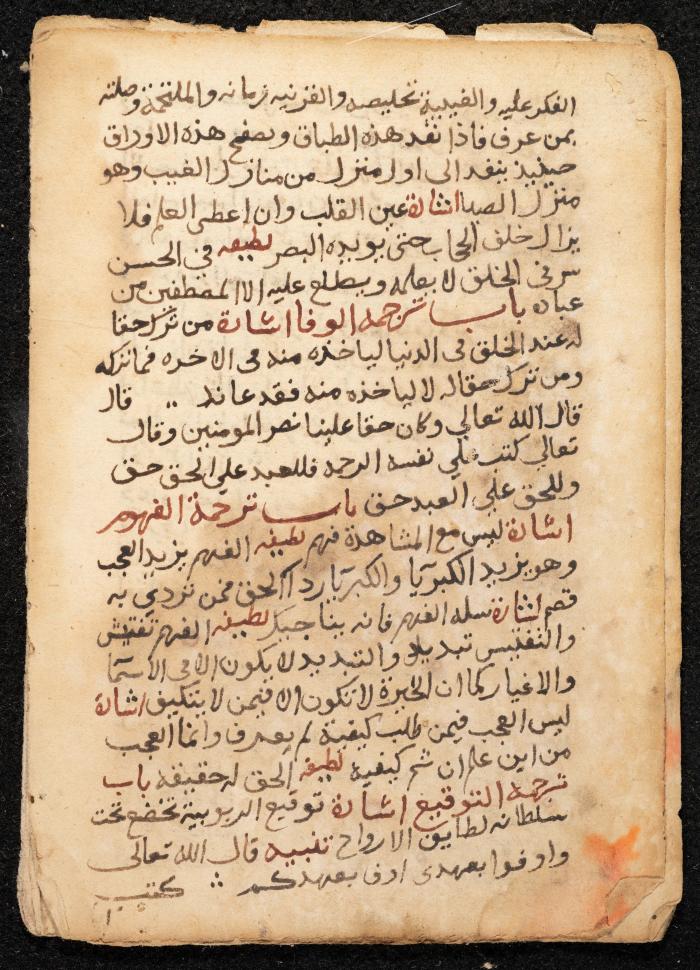 الفكر عليه والغيبية تخليصه والقرنيه زمانه والملتحمة وصلته
بمن عرف فاذا نفد هذه الطباق وتصفح هذه الاوراق
حينيذ ينفد الى اول منزل من منازل الغيب وهو
منزل الصبا اشارة عين القلب وان اعطى العلم فلا
يزال خلق الحجاب حتى يويده البصر لطيفه في الحسن
سر في الخلق لا يعلمه ويطلع عليه الا المصطفين من
عباده باب ترجمه الوفا اشارة من ترك حقا
له عند الخلق في الدنيا لياخذه منه في الاخره فما تركه
ومن ترك حقا له لا لياخذه منه فقد عاند قال
قال الله تعالي وكان حقا علينا نصر المومنين وقال
تعالي كتب علي نفسه الرحمه فللعبد علي الحق حق
وللحق علي العبد حق باب ترجمة الفهوم
اشارة ليس مع المشاهدة فهم لطيفه الفهم يزيد العجب
وهو يزيد الكبريا والكبريا ردا الحق فمن تردي به
قصم اشارة سله الفهم فانه يناجيك لطيفه الفهم تفتيش
والتفتيش تبديل والتبديد لا يكون الا في الاسما
والاغيار كما ان الحيرة لا تكون الا فيمن لا يتكيف اشارة
ليس العجب فيمن طلب كيفية لم يعرف وانما العجب
من اين علم ان ثم كيفيه لطيفه الحق له حقيقه باب
ترجمة التوقيع اشارة توقيع الربوبية تخضع تحت
سلطانه لطايف الارواح تنبيه قال الله تعالى
واوفوا بعهدى اوف بعهدكم كتب